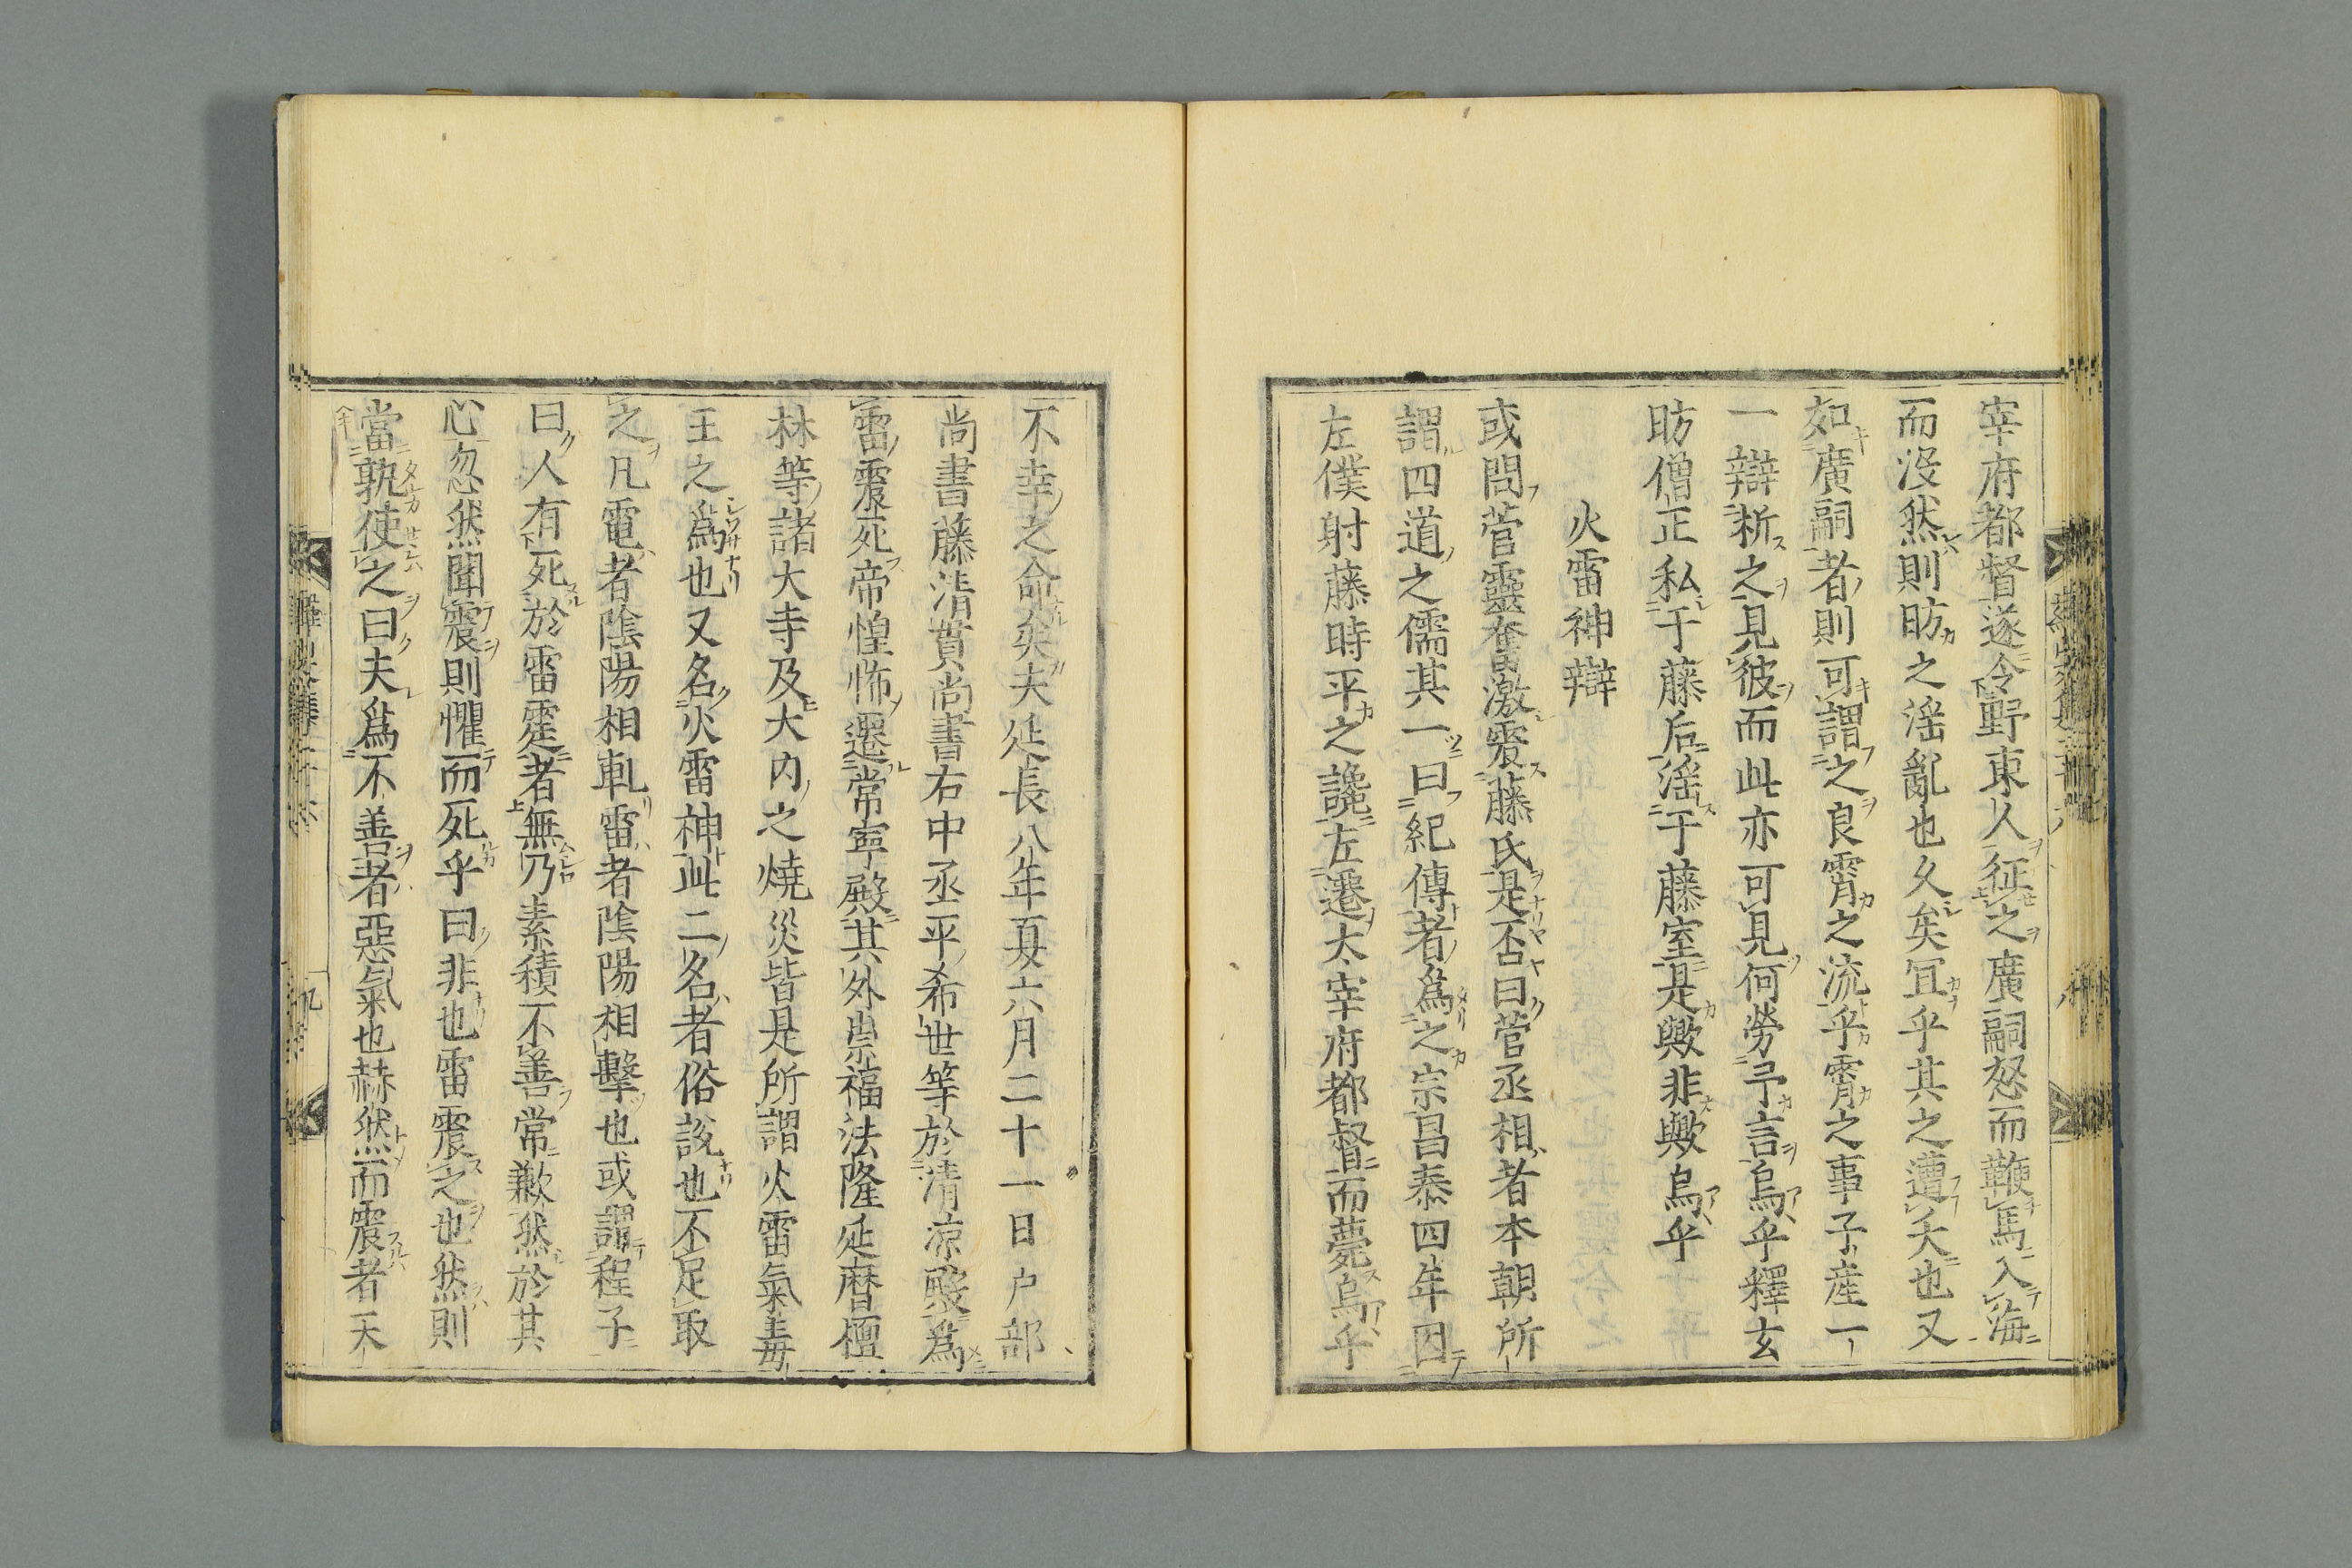 宰府都督遂令野東人征之廣嗣怒而鞭馬入海
而沒然則昉之淫亂也久矣冝乎其之遭夭也又
如廣嗣者則可謂之良霄之流乎霄之事子産一
一辯析之見彼而此亦可見何勞予言烏乎釋玄
昉僧正私于藤后淫于藤室是歟非歟烏乎
火雷神辯
或問菅靈奮激震藤氏是否曰菅丞相者本朝所
謂四道之儒其一曰紀傳者爲之宗昌泰四年因
左僕射藤時平之讒左遷太宰府都督而薨烏乎
不幸之命矣夫延長八年夏六月二十一日户部
尚書藤清貫尚書右中丞平希世等於清凉殿爲
雷震死帝惶怖遷常寧殿其外崇福法隆延曆檀
林等諸大寺及大内之燒災皆是所謂火雷氣毒
王之爲也又名火雷神此二名者俗說也不足取
之凡電者陰陽相軋雷者陰陽相擊也或謂程子
曰人有死於雷霆者無乃素積不善常歉然於其
心忽然聞震則懼而死乎曰非也雷震之也然則
當孰使之曰夫爲不善者惡氣也赫然而震者天
九